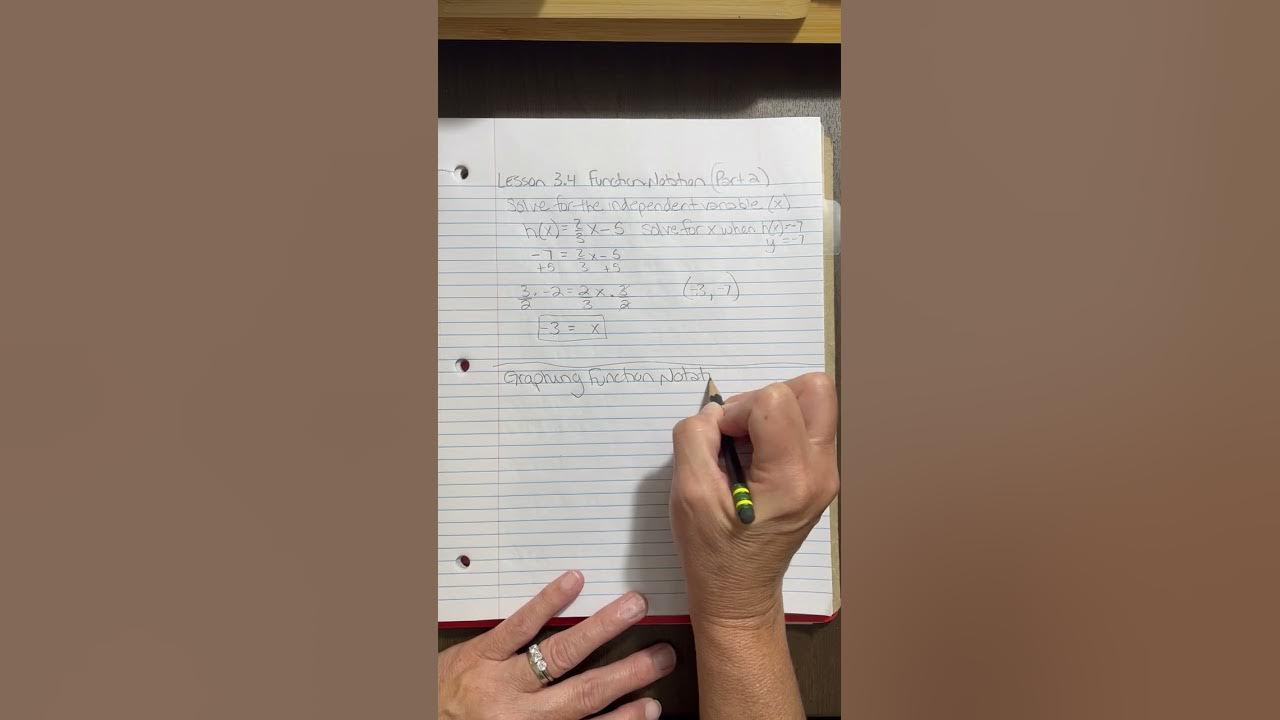 Lesson 3.4 Function Notation (Part 2)
Solve for the independent variable (x)
h(x) = 2/3 x - 5 solve for x when h(x) = -7
y = -7
-7 = 2/3 x - 5
+5 +5
3/2 · -2 = 2/3 x · 3/2 (-3, -7)
-3 = x
Graphing Function Notati